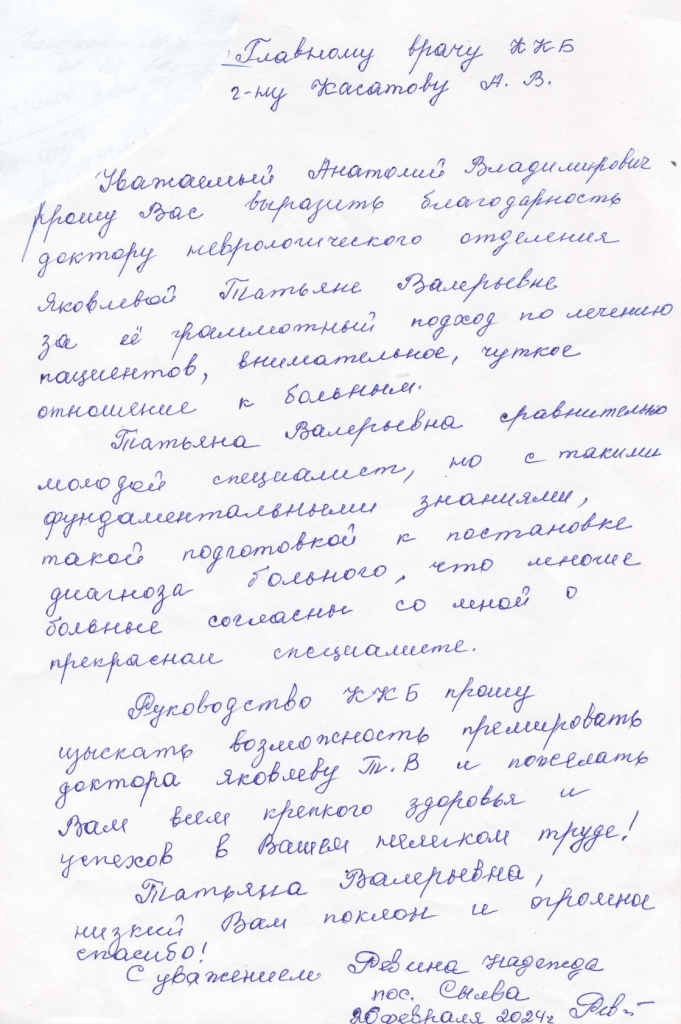 Главному врачу ККБ
г-ну Касатову А. В.
Уважаемый Анатолий Владимирович
прошу Вас выразить благодарность
доктору неврологического отделения
Яковлевой Татьяне Валерьевне
за её граммотный подход по лечению
пациентов, внимательное, чуткое
отношение к больным.
Татьяна Валерьевна сравнительно
молодой специалист, но с такими
фундаментальными знаниями,
такой подготовкой к постановке
диагноза больного, что многие
больные согласны со мной о
прекрасном специалисте.
Руководство ККБ прошу
изыскать возможность премировать
доктора Яковлеву Т.В и пожелать
Вам всем крепкого здоровья и
успехов в Вашем нелегком труде!
Татьяна Валерьевна,
низкий Вам поклон и огромное
спасибо!
С уважением Ревина Надежда
пос. Сылва
26 февраля 2024г Рев